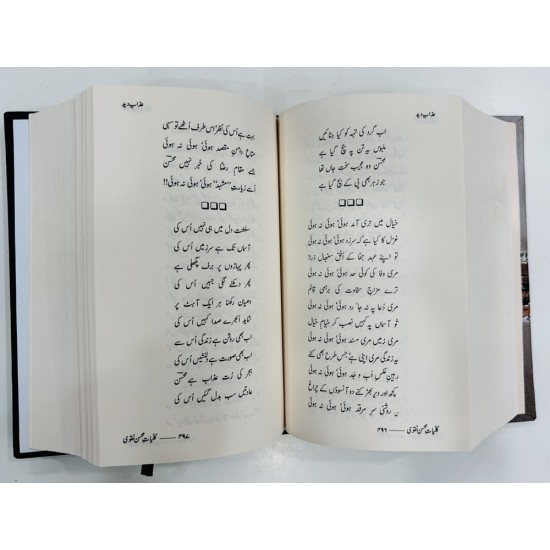 عذاب دید
اب گرد کی تہہ کو کیا ہٹائیں
ملبوس یہ تن پہ جچ گیا ہے
محسنؔ وہ عجیب سخت جاں تھا
جو زہر بھی پی کے بچ گیا ہے
خیال میں تری آمد ہوئی، ہوئی نہ ہوئی
غزل کا کیا ہے کہ سرزد ہوئی، ہوئی نہ ہوئی
تو اپنے عہد جفا کے اُفق سنبھال ذرا
مری وفا کی کوئی حد ہوئی، ہوئی نہ ہوئی
ترے مزاج سخاوت کی برہمی قائم
مری دُعا پہ نہ جا، رد ہوئی، ہوئی نہ ہوئی
تو آسماں پہ کہیں نصب کر خیامِ خیال
مری زمیں مری مسند ہوئی، ہوئی نہ ہوئی
یہ زندگی مری اپنی ہے جس طرح بھی کٹے
رہینِ عکسِ اب و جد ہوئی، ہوئی نہ ہوئی
کچھ اور دیر بھڑکنے دو آنسوؤں کے چراغ
یہ روشنی سرِ مرقد ہوئی، ہوئی نہ ہوئی
کلیاتِ محسن نقوی ۴۹۶
عذاب دید
بہت ہے اُس کی نظر اس طرف اُٹھے تو سہی
متاعِ دامنِ مقصد ہوئی، ہوئی نہ ہوئی
جسے مقامِ رضا کی خبر نہیں محسنؔ
اُسے زیارتِ ”مشہد“ ہوئی، ہوئی نہ ہوئی!!
سلطنت دل میں ہی نہیں اُس کی
آسماں تک ہے سرزمیں اُس کی
پھر پہاڑوں پر برف پگھلی ہے
پھر دمکنے لگی جبیں اُس کی
دھیان رکھنا ہر ایک آہٹ پر
شاید اُبھرے صدا کہیں اُس کی
اب بھی روشن ہے زندگی اُس سے
اب بھی صورت ہے دلنشیں اُس کی
ہجر کی رُت عذاب ہے محسنؔ
عادتیں سب بدل گئیں اُس کی
کلیاتِ محسن نقوی ۴۹۷